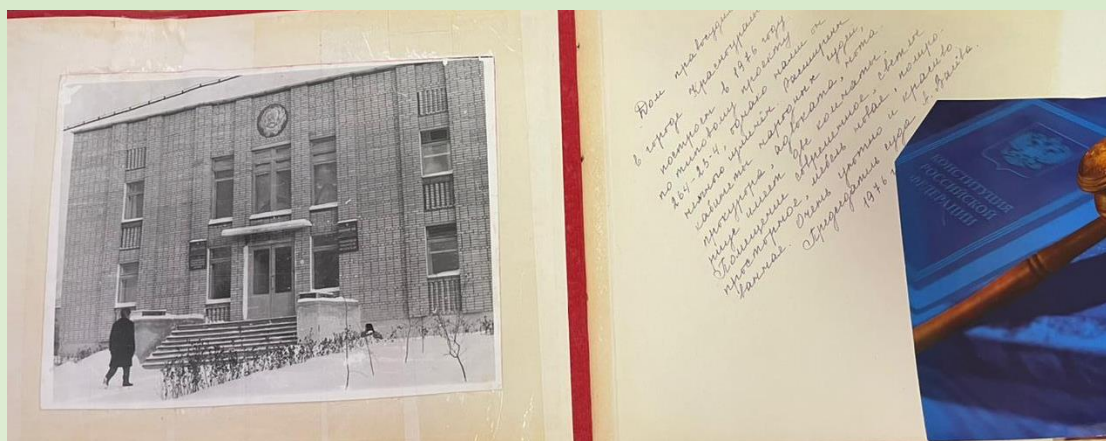 Дом правосудия
в городе Красноуральске
построен в 1976 году
по типовому проекту
264-23-4, однако нами он
расширен
кабинеты народных судей,
прокурора, адвоката, нота.
имеет две комнаты.
Помещение современное, светлое
просторное, мебель новая, полиро-
ванная. Очень уютно и красиво.
Председатель суда
1976 г.
КОНСТИТУЦИЯ
РОССИЙСКОЙ
ФЕДЕРАЦИИ